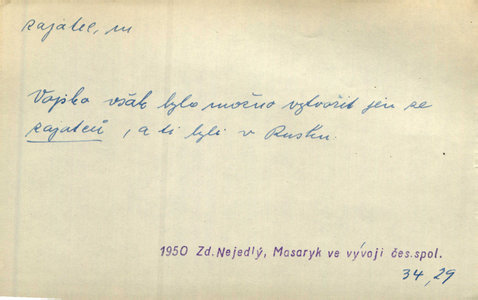 zajatec, m
Vojsko však bylo možno vytvořit jen ze
zajatců, a ti byli v Rusku.
1950 Zd. Nejedlý, Masaryk ve vývoji čes. spol.
34, 29